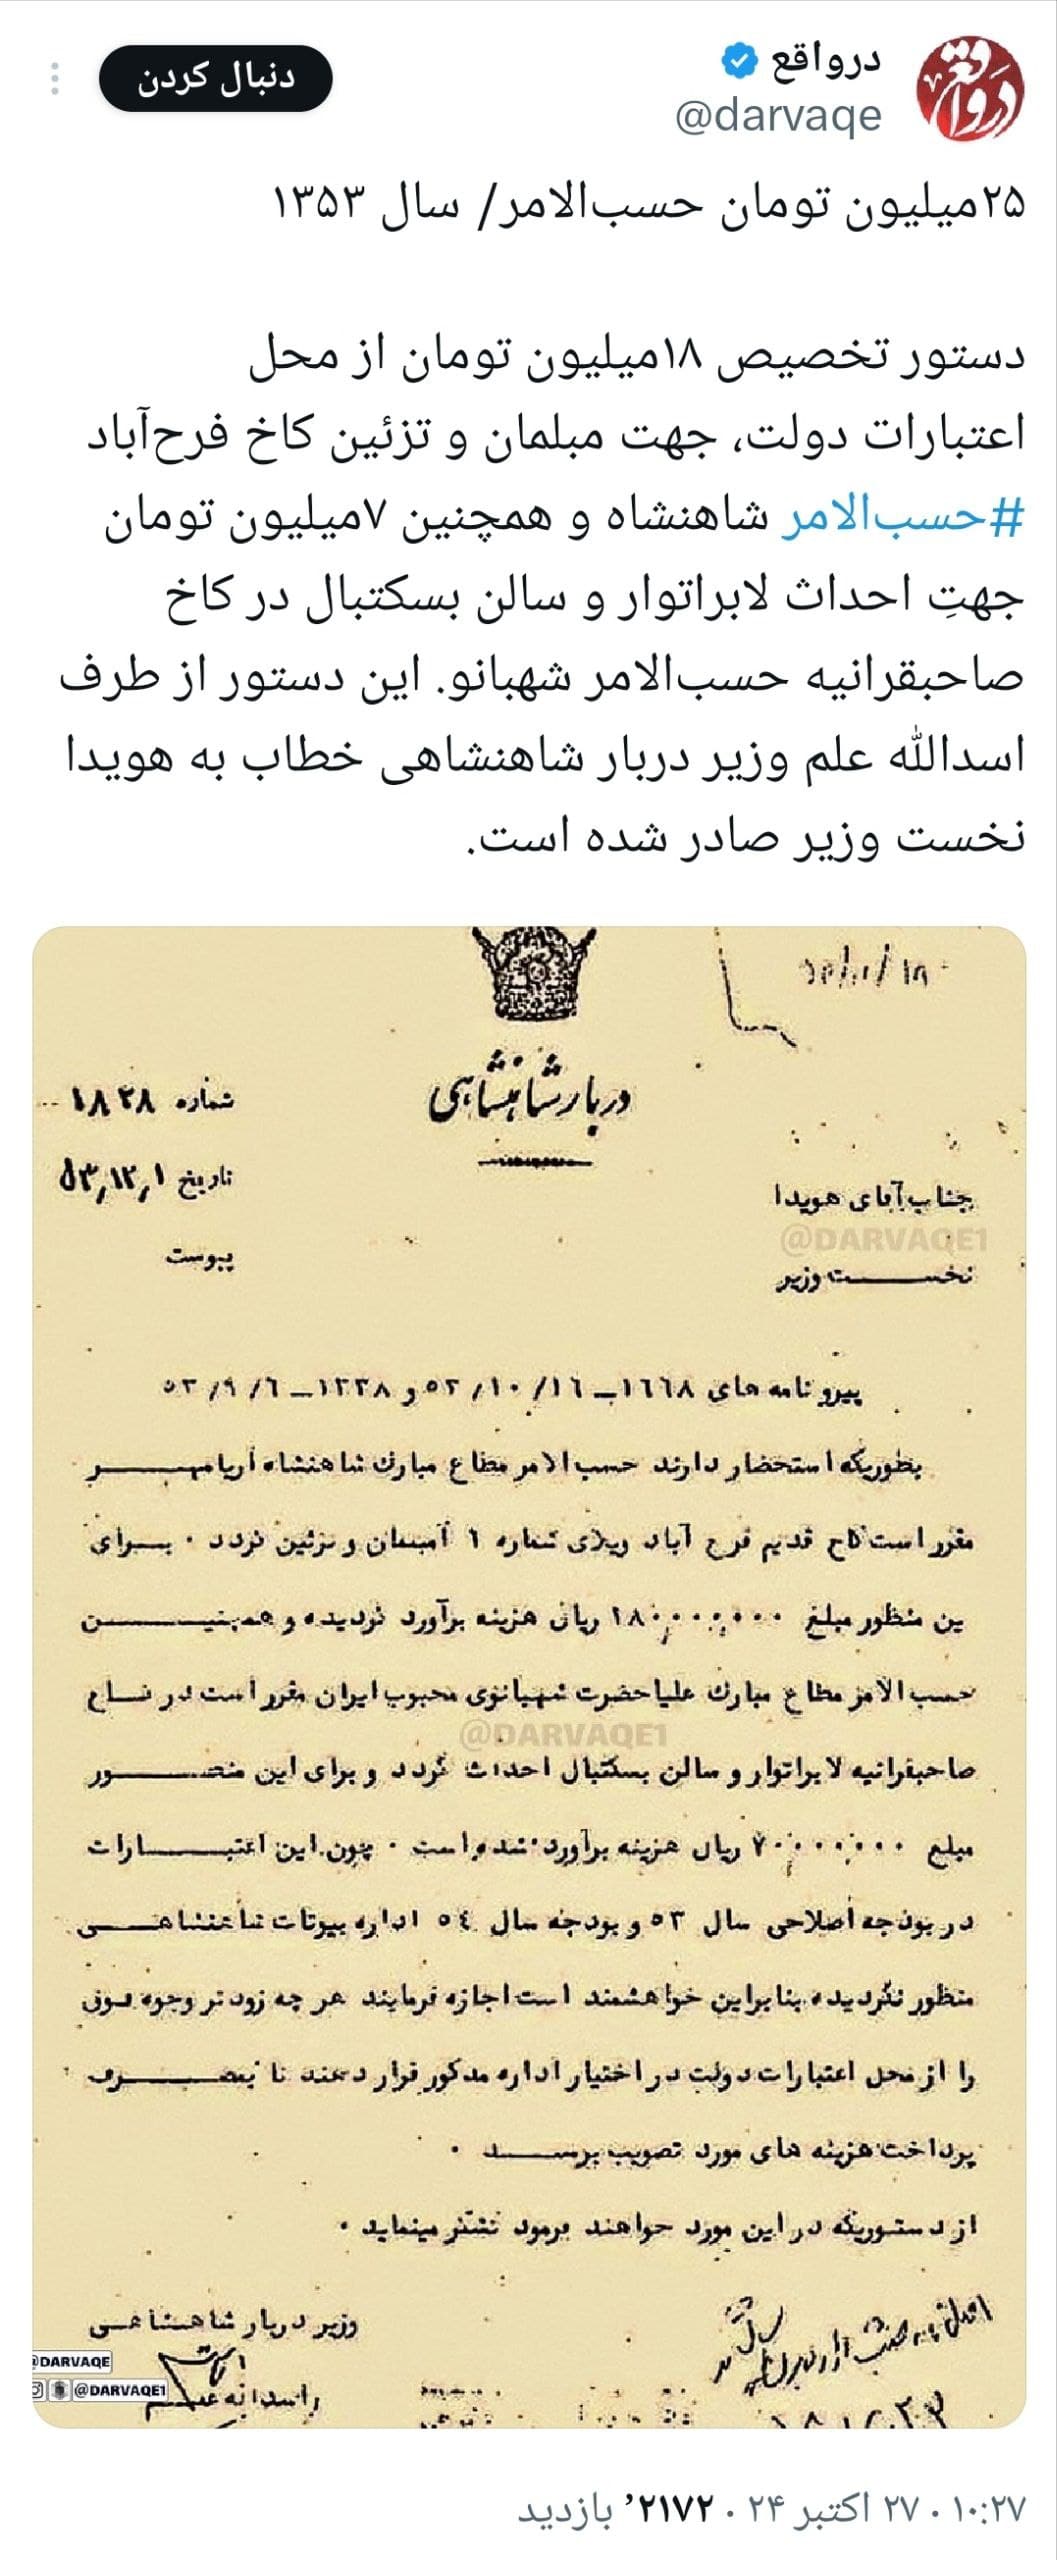 درواقع
@darvaqe
دنبال کردن
۲۵میلیون تومان حسب‌الامر/ سال ۱۳۵۳
دستور تخصیص ۱۸میلیون تومان از محل
اعتبارات دولت، جهت مبلمان و تزئین کاخ فرح‌آباد
#حسب‌الامر شاهنشاه و همچنین ۷میلیون تومان
جهتِ احداث لابراتوار و سالن بسکتبال در کاخ
صاحبقرانیه حسب‌الامر شهبانو. این دستور از طرف
اسدالله علم وزیر دربار شاهنشاهی خطاب به هویدا
نخست وزیر صادر شده است.
دربار شاهنشاهی
شماره ۱۸۳۸
تاریخ ۵۳,۱۲,۱
پیوست
جناب آقای هویدا
@DARVAQE1
نخست وزیر
پیرو نامه های ۱٦٦٨ــ۱٦/ ۱۰/ ۵۳ و ۱۳۳۸ــ ٦/ ۹/ ۵۳
بطوریکه استحضار دارند حسب الامر مطاع مبارك شاهنشاه آریامهر
مقرر است کاخ قدیم فرح آباد ویلای شماره ۱ آمبلمان و تزئین گردد ۰ برای
ین منظور مبلغ ۱۸۰,۰۰۰,۰۰۰ ریال هزینه برآورد گردیده و همچنین
حسب الامر مطاع مبارك علیاحضرت شهبانوی محبوب ایران مقرر است در کاخ
@DARVAQE1
صاحبقرانیه لابراتوار و سالن بسکتبال احداث گردد و برای این منظور
مبلغ ۷۰,۰۰۰,۰۰۰ ریال هزینه برآورد شده است ۰ چون این اعتبارات
در بودجه اصلاحی سال ۵۳ و بودجه سال ٥٤ اداره بیوتات شاهنشاهی
منظور نگردیده بنابراین خواهشمند است اجازه فرمایند هر چه زودتر وجوه فوق
را از محل اعتبارات دولت در اختیار اداره مذکور قرار دهند تا بمصرف
پرداخت هزینه های مورد تصویب برسد ۰
از دستوریکه در این مورد خواهند فرمود تشکر مینماید ۰
وزیر دربار شاهنشاهی
اسداله علم
@DARVAQE
@DARVAQE1
۱۰:۲۷ · ۲۷ اکتبر ۲۴ · ۲۱۷۲٬ بازدید